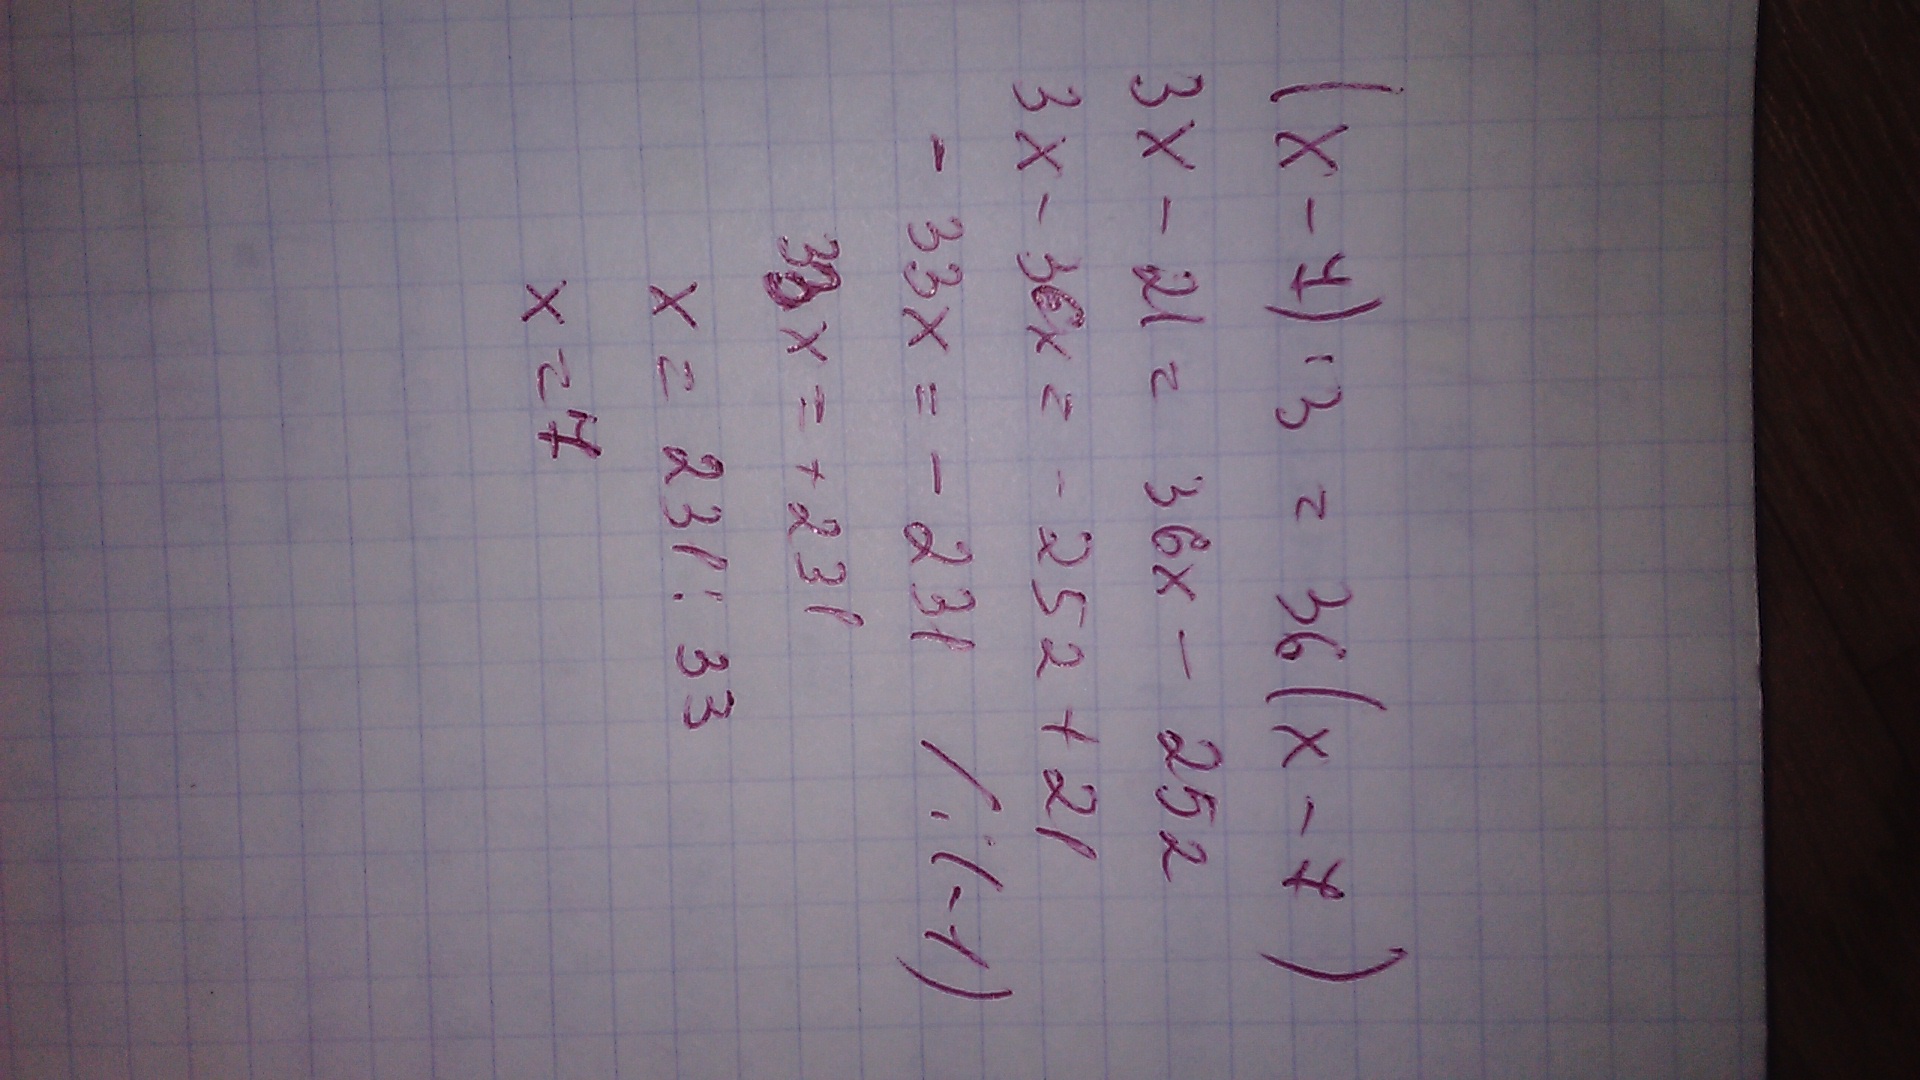 (x - 7) · 3 = 36(x - 7)
3x - 21 = 36x - 252
3x - 36x = - 252 + 21
- 33x = - 231 / : (-1)
33x = + 231
x = 231 : 33
x = 7